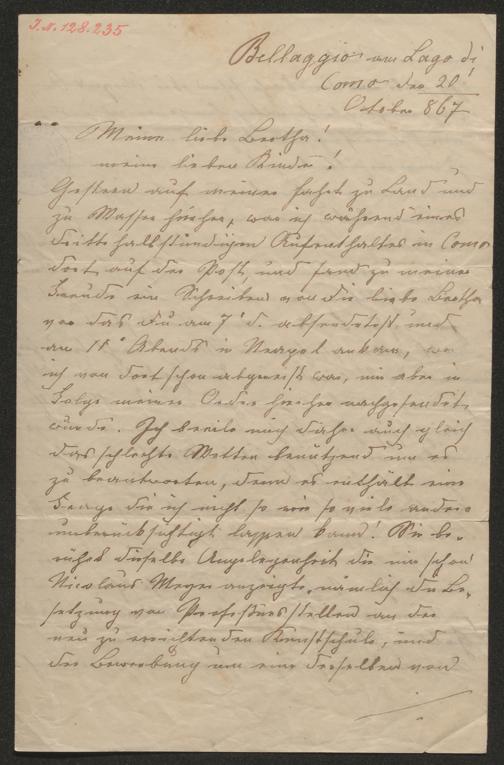 J.N. 128.235
Bellaggio am Lago di
Como den 20t
October 867
Meine liebe Bertha!
meine lieben Kinder!
Gestern auf meiner Fahrt zu Land und
zu Wasser hierher, war ich während eines
dritthalbstündigen Aufenthaltes in Como
dort auf der Post und fand zu meiner
Freude ein Schreiben von dir liebe Bertha
vor das Du am 7t d. absendetest und
am 11t Abends in Neapel ankam, wo
ich von dort schon abgereist war, mir aber in
Folge meiner Ordre hierher nachgesendet
wurde. Ich beeile mich daher auch gleich
das schlechte Wetter benützend um es
zu beantworten, denn es enthält eine
Frage die ich nicht so wie so viele andere
unberücksichtigt lassen kann! Sie be-
rühret dieselbe Angelegenheit die mir schon
Nicolaus Meyer anzeigte, nämlich die Be-
setzung von Professursstellen an der
neu zu errichtenden Kunstschule, und
der Bewerbung um eine derselben von